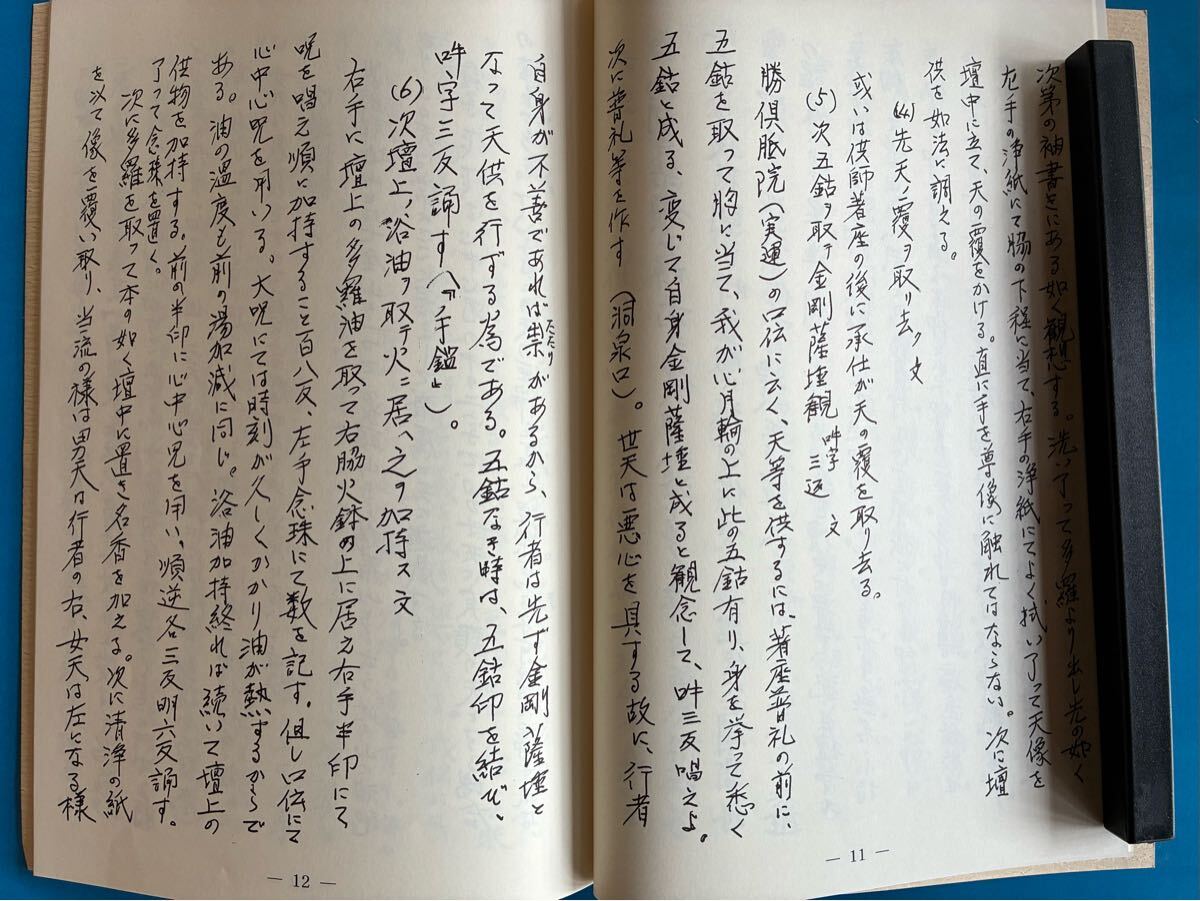 次第の袖書きにある如く観想する。洗い了って多羅より出し先の如く
左手の浄紙にて脇の下程に当て、右手の浄紙にてよく拭い了って天像を
壇中に立て、天の覆をかける。直に手を尊像に触れてはならない。次に壇
供を如法に調える。
(4)先天ノ覆ヲ取リ去ク文
或いは供師著座の後に承仕が天の覆を取り去る。
(5)次五鈷ヲ取テ金剛薩埵観 吽字三返 文
勝倶胝院(実運)の口伝に云く、天等を供するには、著座普礼の前に、
五鈷を取って胸に当て、我が心月輪の上に此の五鈷有り、身を挙って悉く
五鈷と成る、変じて自身金剛薩埵と成ると観念して、吽三反唱えよ。
次に普礼等を作す(洞泉口)。世天は悪心を具する故に、行者
— 11 —
自身が不善であれば祟(たたり)があるから、行者は先ず金剛薩埵と
なって天供を行ずる為である。五鈷なき時は、五鈷印を結び、
吽字三反誦す(『手鑑』)。
(6)次壇上ノ浴油ヲ取テ火ニ居ヘ之ヲ加持ス文
右手に壇上の多羅油を取って右脇火鉢の上に居え右手半印にて
呪を唱え順に加持すること百八反、左手念珠にて数を記す。但し口伝にて
心中心呪を用いる。大呪にては時刻が久しくかかり油が熱するからで
ある。油の温度も前の湯加減に同じ。浴油加持終れば続いて壇上の
供物を加持する。前の半印に心中心呪を用い、順逆各三反明六反誦す。
了って念珠を置く。
次に多羅を取って本の如く壇中に置き名香を加える。次に清浄の紙
を以て像を覆い取り、当流の様は男天は行者の右、女天は左になる様
— 12 —